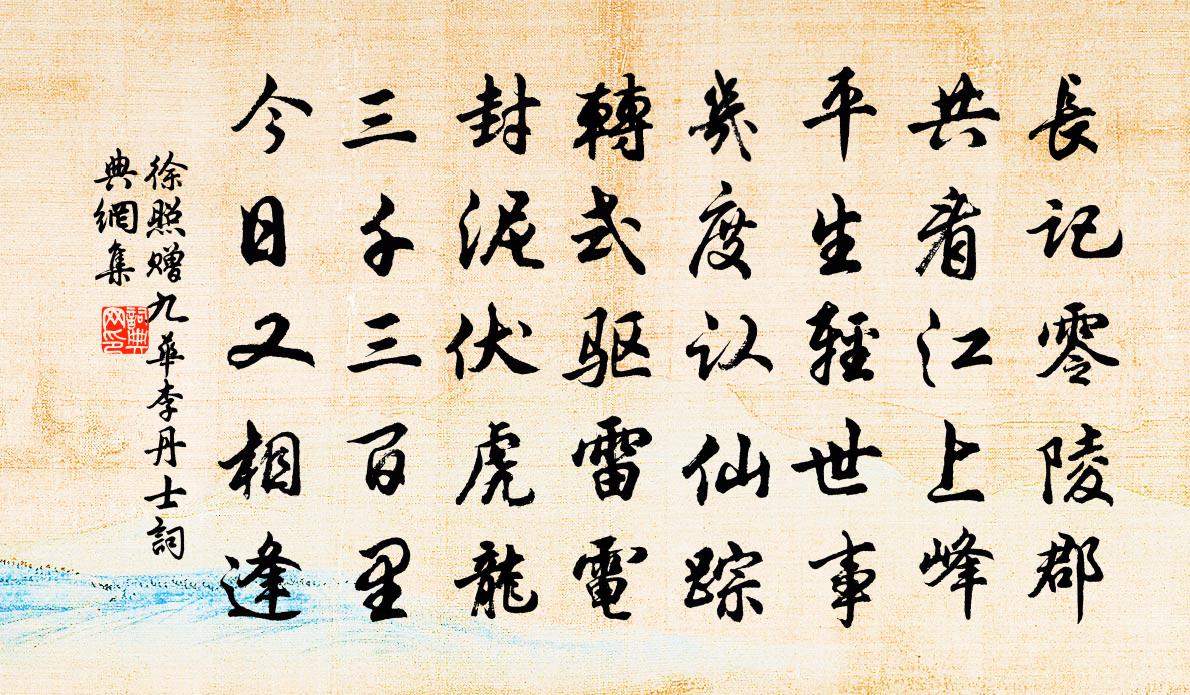 長記零陵郡
共看江上峰
平生輕世事
幾度认仙踪
轉式驱雷電
封泥伏虎龍
三千三百里
今日又相逢
徐照赠九華李丹士詞
典網集
詞典
网印